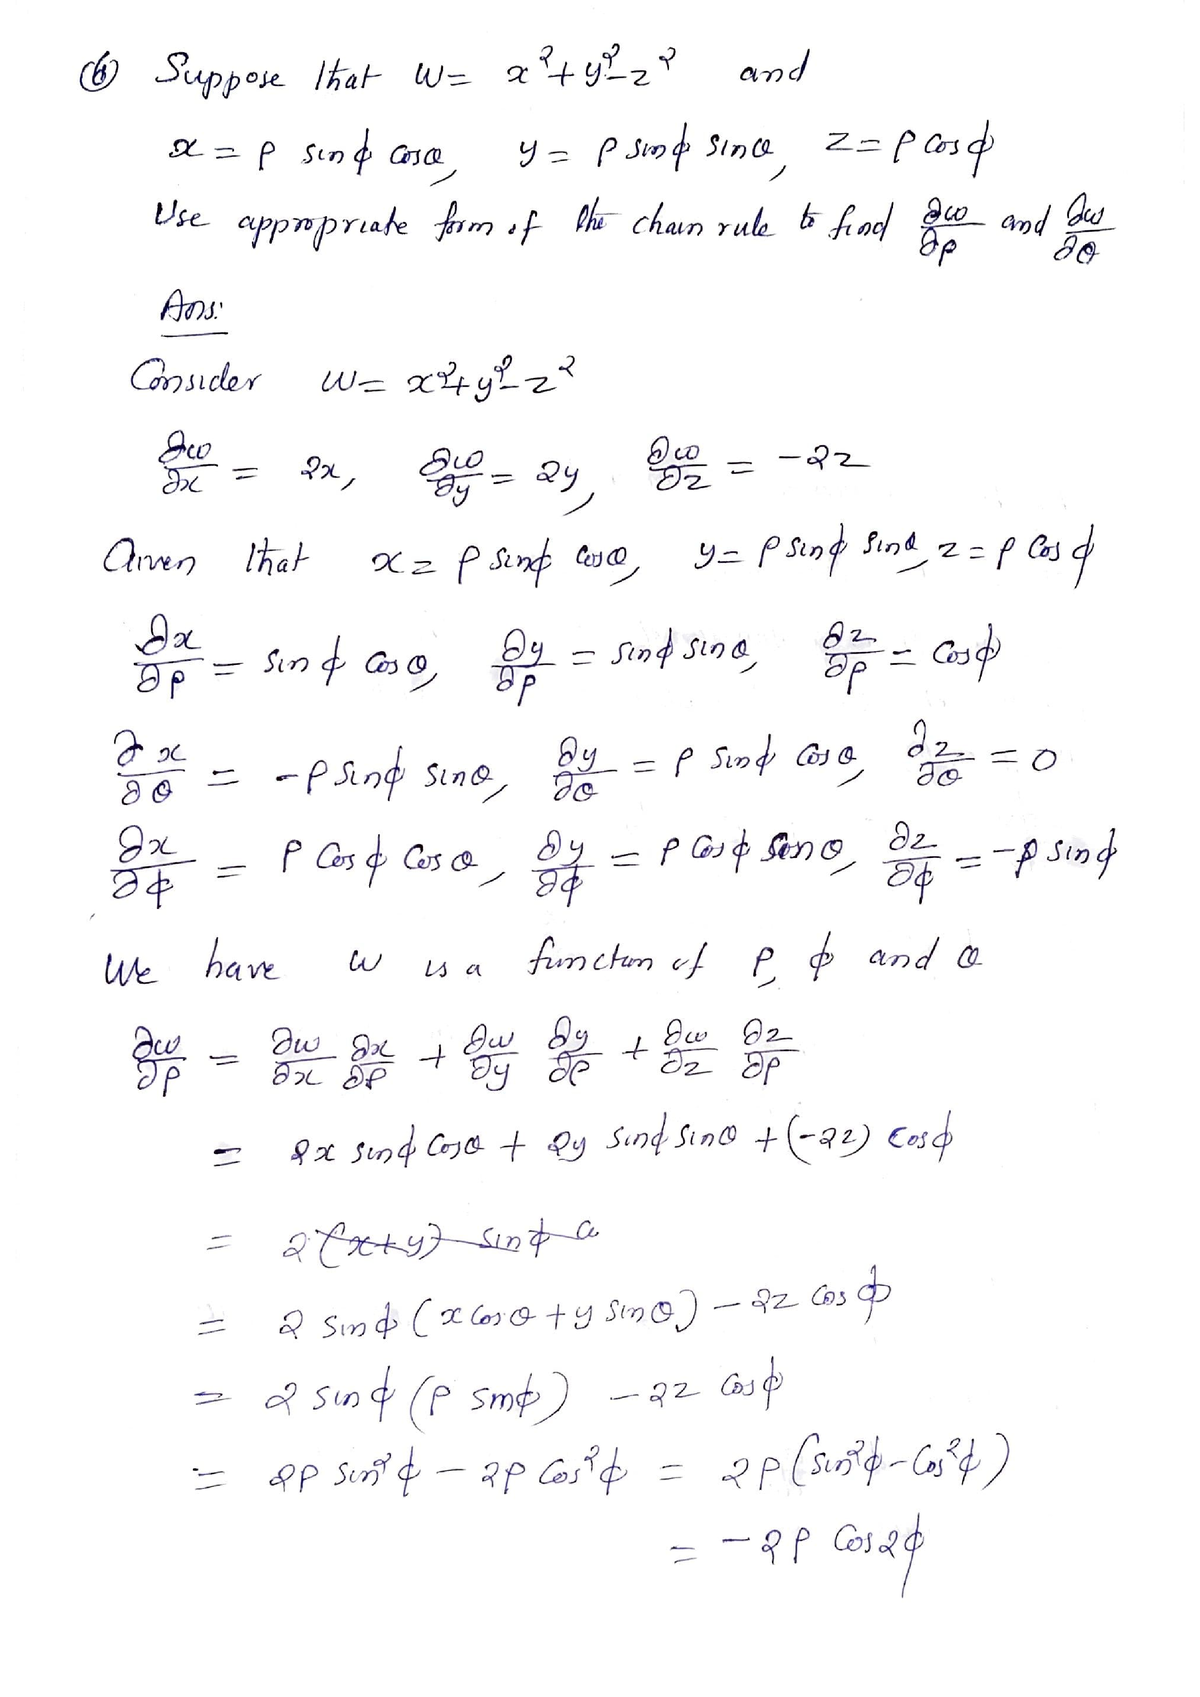 (6) Suppose that w = x² + y² - z² and
x = ρ sinφ cosθ, y = ρ sinφ sinθ, z = ρ cosφ
Use appropriate form of the chain rule to find ∂w/∂ρ and ∂w/∂θ
Ans:
Consider w = x² + y² - z²
∂w/∂x = 2x, ∂w/∂y = 2y, ∂w/∂z = -2z
Given that x = ρ sinφ cosθ, y = ρ sinφ sinθ, z = ρ cosφ
∂x/∂ρ = sinφ cosθ, ∂y/∂ρ = sinφ sinθ, ∂z/∂ρ = cosφ
∂x/∂θ = -ρ sinφ sinθ, ∂y/∂θ = ρ sinφ cosθ, ∂z/∂θ = 0
∂x/∂φ = ρ cosφ cosθ, ∂y/∂φ = ρ cosφ sinθ, ∂z/∂φ = -ρ sinφ
We have w is a function of ρ, φ and θ
∂w/∂ρ = ∂w/∂x ∂x/∂ρ + ∂w/∂y ∂y/∂ρ + ∂w/∂z ∂z/∂ρ
= 2x sinφ cosθ + 2y sinφ sinθ + (-2z) cosφ
= 2 (x+y) sinφ c
= 2 sinφ (x cosθ + y sinθ) - 2z cosφ
= 2 sinφ (ρ sinφ) - 2z cosφ
= 2ρ sin²φ - 2ρ cos²φ = 2ρ (sin²φ - cos²φ)
= -2ρ cos2φ